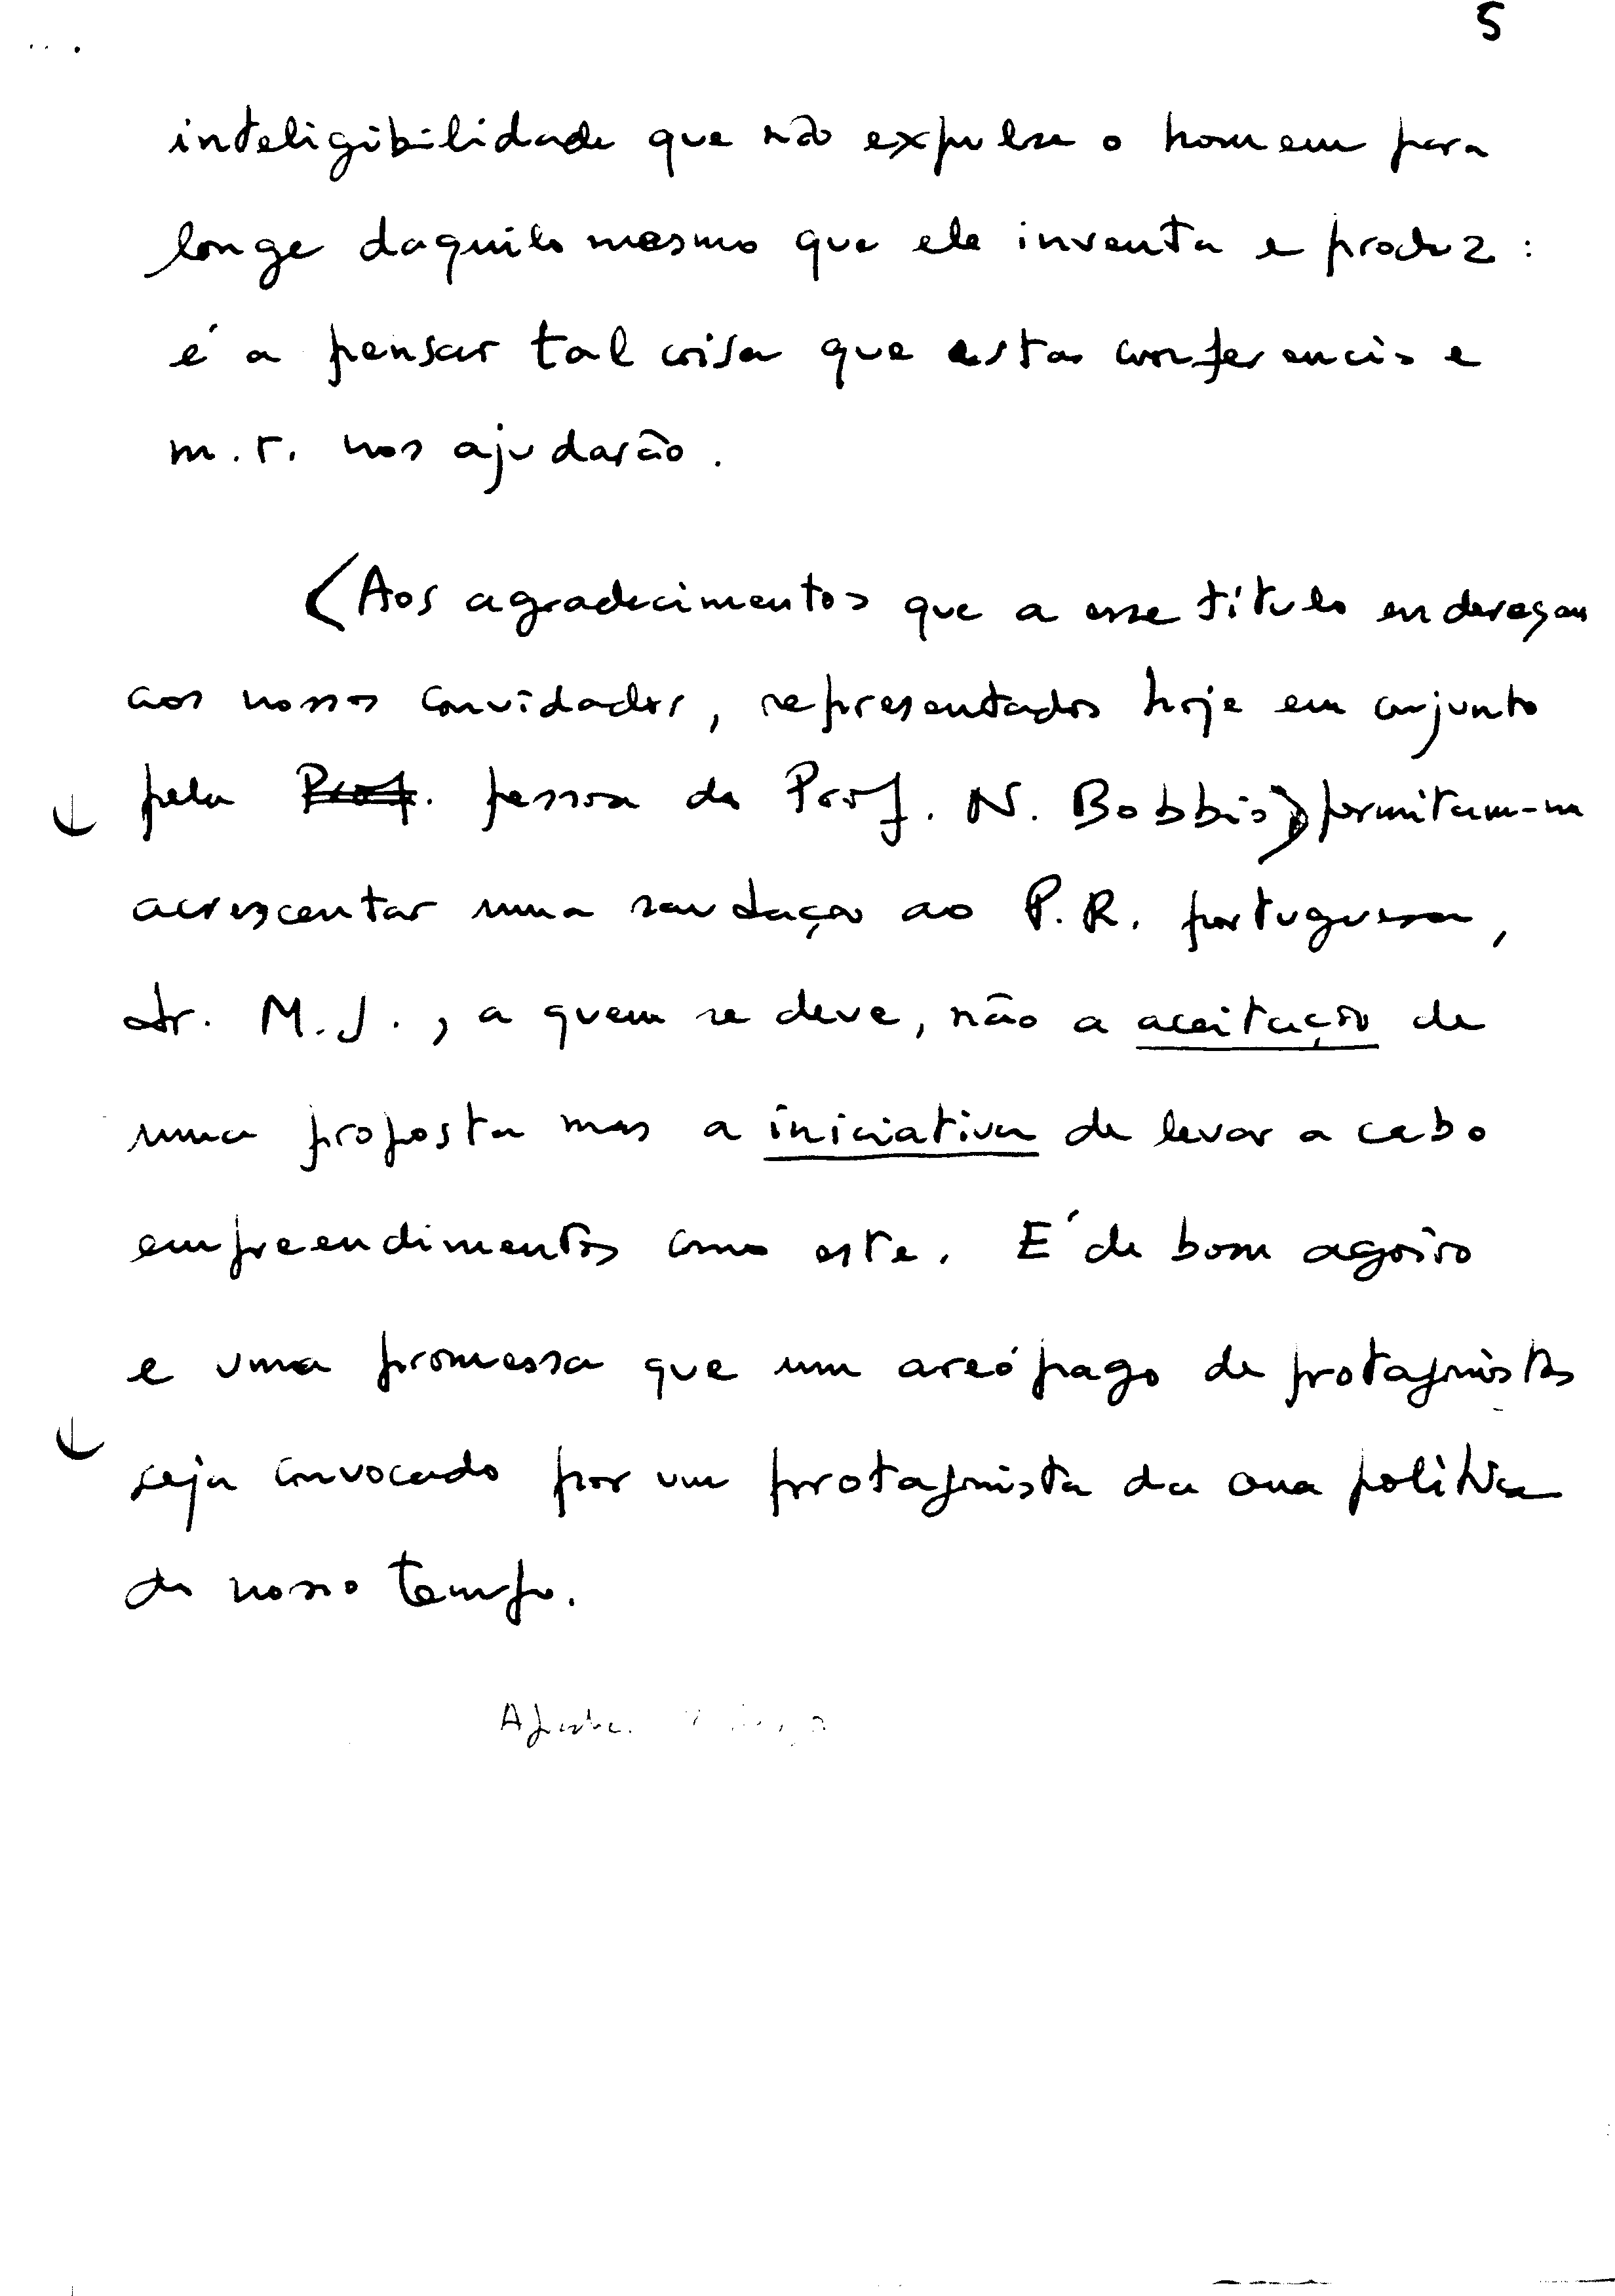 5
inteligibilidade que não expulse o homem para
longe daquilo mesmo que ele inventa e produz :
é a pensar tal coisa que estas conferencias e
m. r. nos ajudarão.
(Aos agradecimentos que a esse título
aos nossos convidados, representados hoje em conjunto
pela Prof. pessoa do Prof. N. Bobbio) permitam-m
acrescentar uma saudação ao P.R. português,
dr. M. J., a quem se deve, não a aceitação de
uma proposta mas a iniciativa de levar a cabo
empreendimentos como este. É de bom agoiro
e uma promessa que um areópago de protagonistas
seja convocado por um protagonista da política
do nosso tempo.